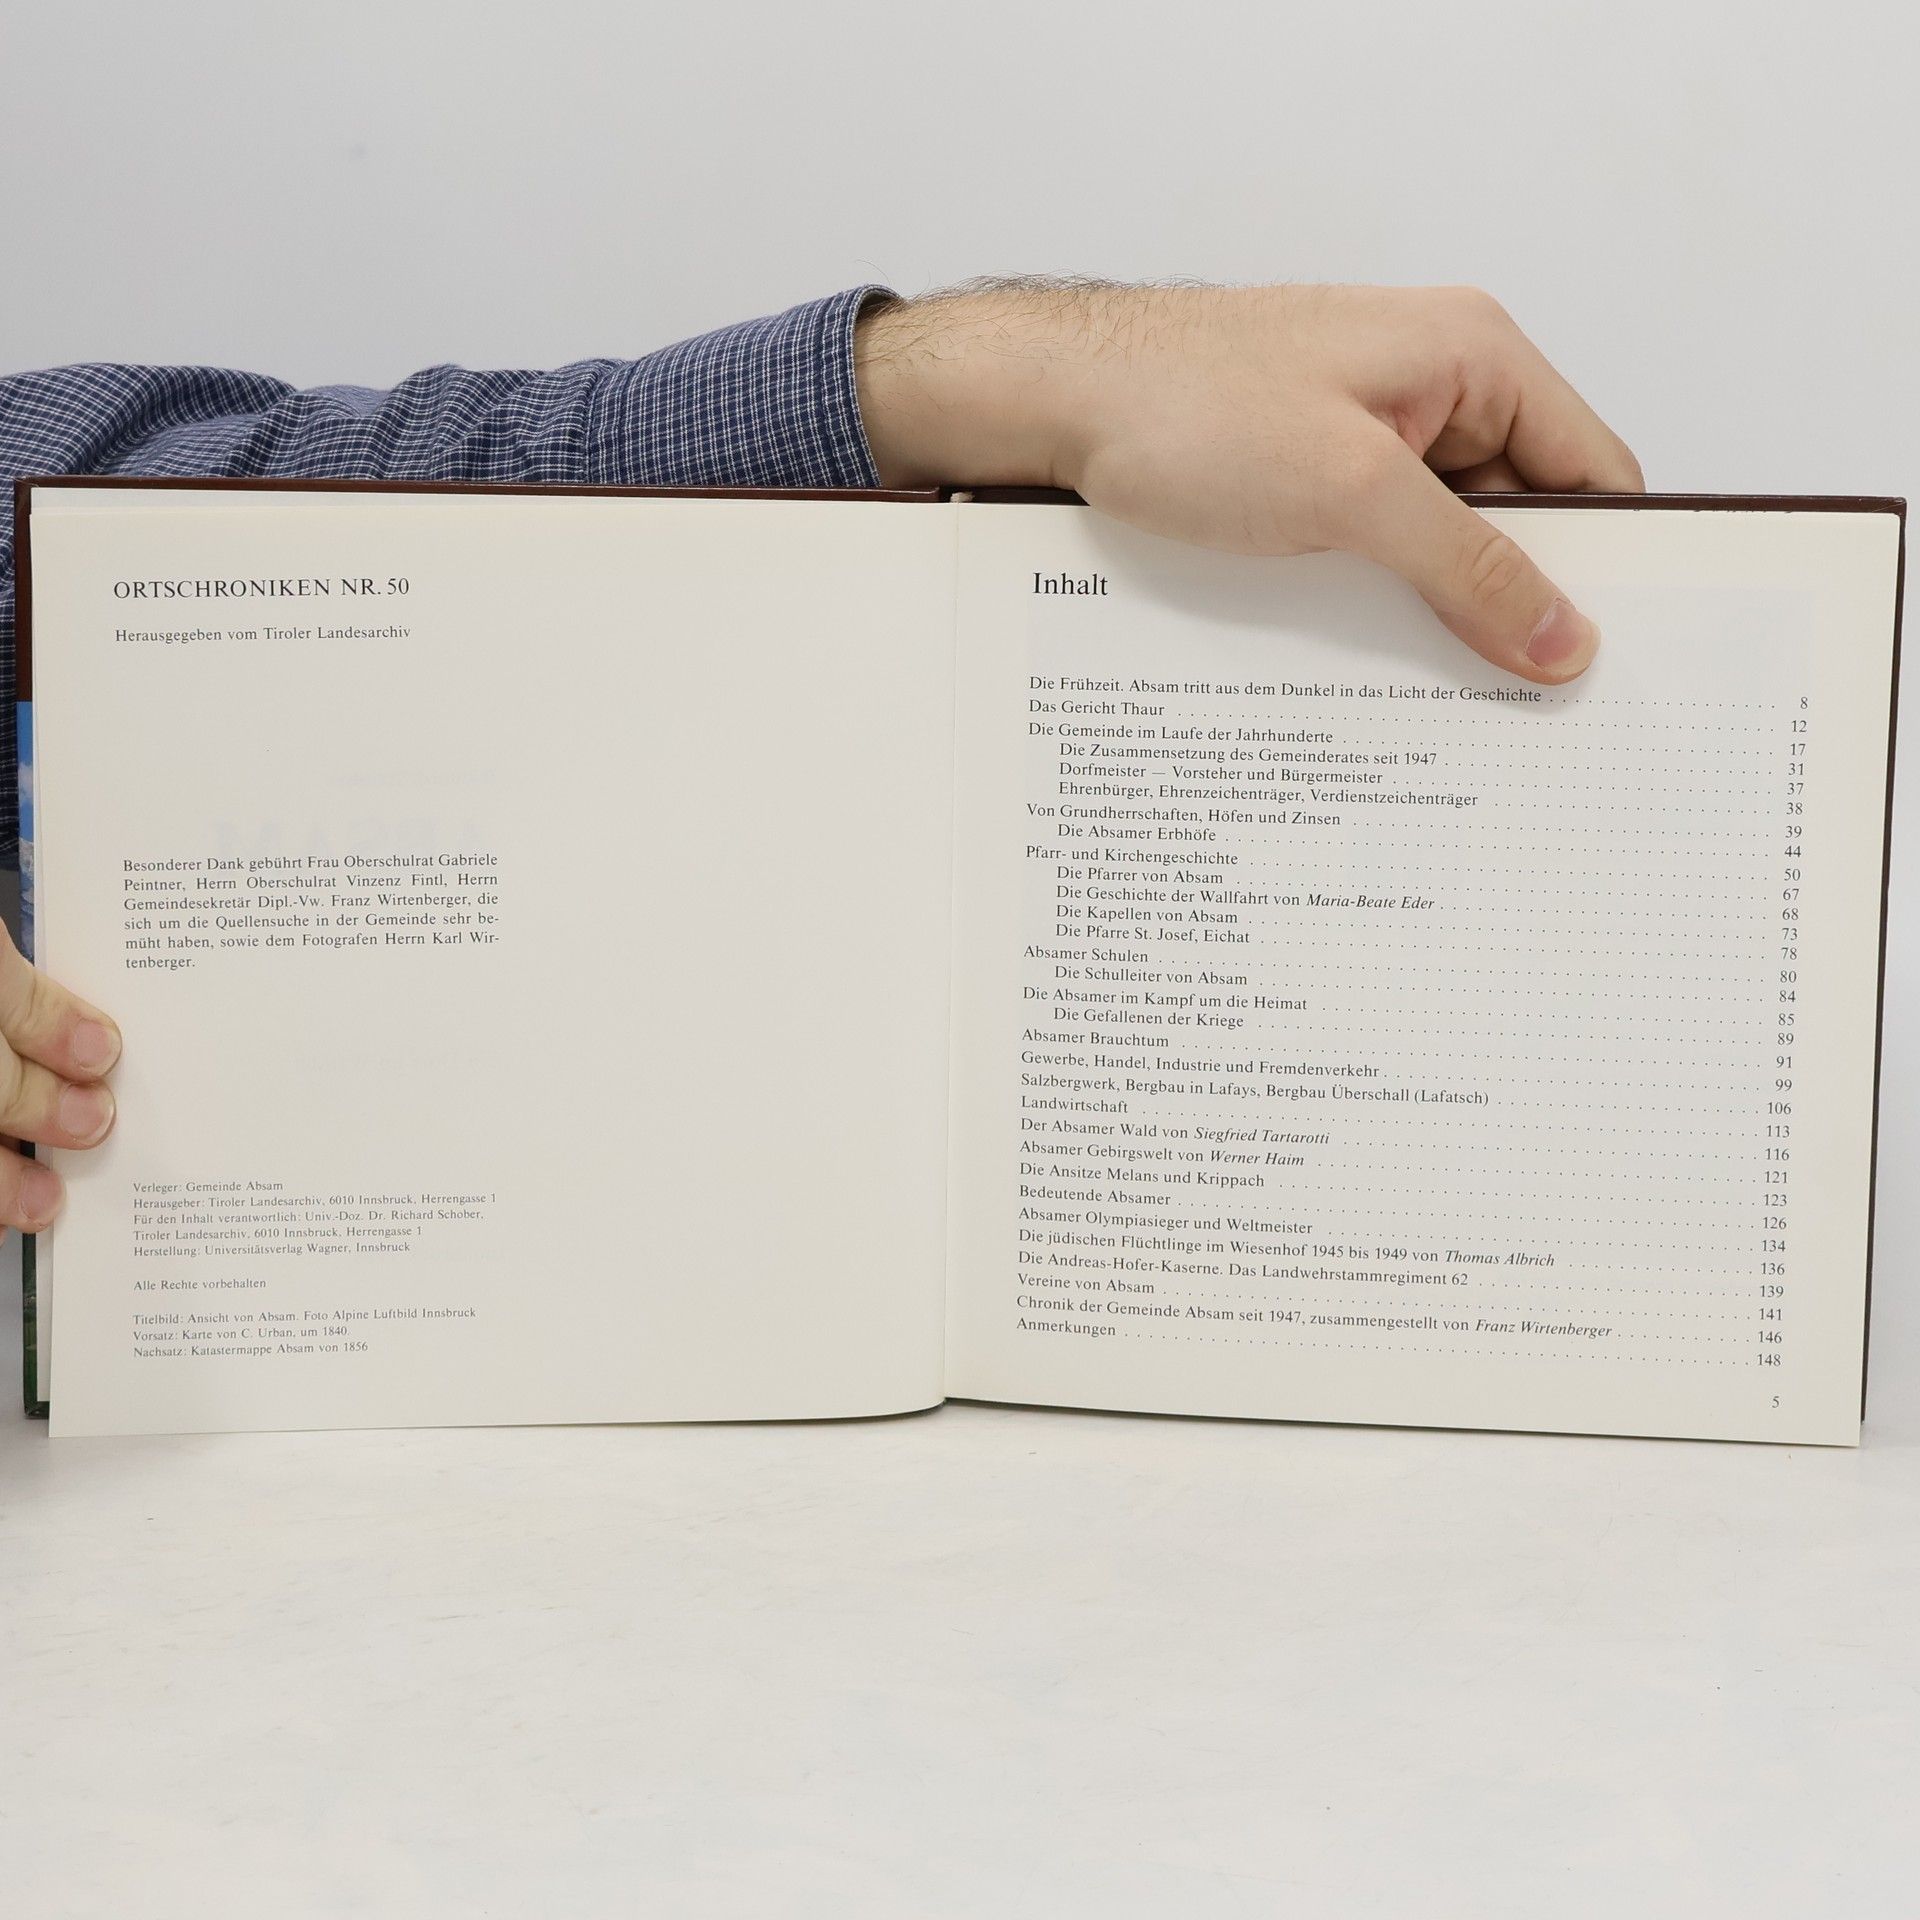 ORTSCHRONIKEN NR. 50
Herausgegeben vom Tiroler Landesarchiv
Besonderer Dank gebührt Frau Oberschulrat Gabriele
Peintner, Herrn Oberschulrat Vinzenz Fintl, Herrn
Gemeindesekretär Dipl.-Vw. Franz Wirtenberger, die
sich um die Quellensuche in der Gemeinde sehr be-
müht haben, sowie dem Fotografen Herrn Karl Wir-
tenberger.
Verleger: Gemeinde Absam
Herausgeber: Tiroler Landesarchiv, 6010 Innsbruck, Herrengasse 1
Für den Inhalt verantwortlich: Univ.-Doz. Dr. Richard Schober,
Tiroler Landesarchiv, 6010 Innsbruck, Herrengasse 1
Herstellung: Universitätsverlag Wagner, Innsbruck
Alle Rechte vorbehalten
Titelbild: Ansicht von Absam. Foto Alpine Luftbild Innsbruck
Vorsatz: Karte von C. Urban, um 1840.
Nachsatz: Katastermappe Absam von 1856
Inhalt
Die Frühzeit. Absam tritt aus dem Dunkel in das Licht der Geschichte . . . . . . . . . . 8
Das Gericht Thaur . . . . . . . . . . 12
Die Gemeinde im Laufe der Jahrhunderte . . . . . . . . . . 17
Die Zusammensetzung des Gemeinderates seit 1947 . . . . . . . . . . 31
Dorfmeister — Vorsteher und Bürgermeister . . . . . . . . . . 37
Ehrenbürger, Ehrenzeichenträger, Verdienstzeichenträger . . . . . . . . . . 38
Von Grundherrschaften, Höfen und Zinsen . . . . . . . . . . 39
Die Absamer Erbhöfe . . . . . . . . . . 44
Pfarr- und Kirchengeschichte . . . . . . . . . . 50
Die Pfarrer von Absam . . . . . . . . . . 67
Die Geschichte der Wallfahrt von Maria-Beate Eder . . . . . . . . . . 68
Die Kapellen von Absam . . . . . . . . . . 73
Die Pfarre St. Josef, Eichat . . . . . . . . . . 78
Absamer Schulen . . . . . . . . . . 80
Die Schulleiter von Absam . . . . . . . . . . 84
Die Absamer im Kampf um die Heimat . . . . . . . . . . 85
Die Gefallenen der Kriege . . . . . . . . . . 89
Absamer Brauchtum . . . . . . . . . . 91
Gewerbe, Handel, Industrie und Fremdenverkehr . . . . . . . . . . 99
Salzbergwerk, Bergbau in Lafays, Bergbau Überschall (Lafatsch) . . . . . . . . . . 106
Landwirtschaft . . . . . . . . . . 113
Der Absamer Wald von Siegfried Tartarotti . . . . . . . . . . 116
Absamer Gebirgswelt von Werner Haim . . . . . . . . . . 121
Die Ansitze Melans und Krippach . . . . . . . . . . 123
Bedeutende Absamer . . . . . . . . . . 126
Absamer Olympiasieger und Weltmeister . . . . . . . . . . 134
Die jüdischen Flüchtlinge im Wiesenhof 1945 bis 1949 von Thomas Albrich . . . . . . . . . . 136
Die Andreas-Hofer-Kaserne. Das Landwehrstammregiment 62 . . . . . . . . . . 139
Vereine von Absam . . . . . . . . . . 141
Chronik der Gemeinde Absam seit 1947, zusammengestellt von Franz Wirtenberger . . . . . . . . . . 146
Anmerkungen . . . . . . . . . . 148
5